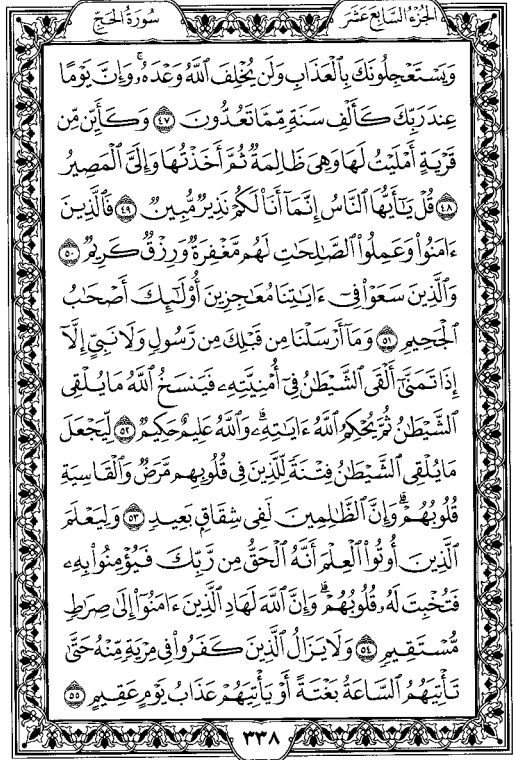 الجزء السابع عشر
سورة الحج
وَيَسْتَعْجِلُونَكَ بِٱلْعَذَابِ وَلَن يُخْلِفَ ٱللَّهُ وَعْدَهُۥ ۚ وَإِنَّ يَوْمًا
عِندَ رَبِّكَ كَأَلْفِ سَنَةٍ مِّمَّا تَعُدُّونَ ٤٧ وَكَأَيِّن مِّن
قَرْيَةٍ أَمْلَيْتُ لَهَا وَهِىَ ظَالِمَةٌ ثُمَّ أَخَذْتُهَا وَإِلَىَّ ٱلْمَصِيرُ
٤٨ قُلْ يَٰٓأَيُّهَا ٱلنَّاسُ إِنَّمَآ أَنَا۠ لَكُمْ نَذِيرٌ مُّبِينٌ ٤٩ فَٱلَّذِينَ
ءَامَنُوا۟ وَعَمِلُوا۟ ٱلصَّٰلِحَٰتِ لَهُم مَّغْفِرَةٌ وَرِزْقٌ كَرِيمٌ ٥٠
وَٱلَّذِينَ سَعَوْا۟ فِىٓ ءَايَٰتِنَا مُعَٰجِزِينَ أُو۟لَٰٓئِكَ أَصْحَٰبُ
ٱلْجَحِيمِ ٥١ وَمَآ أَرْسَلْنَا مِن قَبْلِكَ مِن رَّسُولٍ وَلَا نَبِىٍّ إِلَّآ
إِذَا تَمَنَّىٰٓ أَلْقَى ٱلشَّيْطَٰنُ فِىٓ أُمْنِيَّتِهِۦ فَيَنسَخُ ٱللَّهُ مَا يُلْقِى
ٱلشَّيْطَٰنُ ثُمَّ يُحْكِمُ ٱللَّهُ ءَايَٰتِهِۦ ۗ وَٱللَّهُ عَلِيمٌ حَكِيمٌ ٥٢ لِّيَجْعَلَ
مَا يُلْقِى ٱلشَّيْطَٰنُ فِتْنَةً لِّلَّذِينَ فِى قُلُوبِهِم مَّرَضٌ وَٱلْقَاسِيَةِ
قُلُوبُهُمْ ۗ وَإِنَّ ٱلظَّٰلِمِينَ لَفِى شِقَاقٍۭ بَعِيدٍ ٥٣ وَلِيَعْلَمَ
ٱلَّذِينَ أُوتُوا۟ ٱلْعِلْمَ أَنَّهُ ٱلْحَقُّ مِن رَّبِّكَ فَيُؤْمِنُوا۟ بِهِۦ
فَتُخْبِتَ لَهُۥ قُلُوبُهُمْ ۗ وَإِنَّ ٱللَّهَ لَهَادِ ٱلَّذِينَ ءَامَنُوٓا۟ إِلَىٰ صِرَٰطٍ
مُّسْتَقِيمٍ ٥٤ وَلَا يَزَالُ ٱلَّذِينَ كَفَرُوا۟ فِى مِرْيَةٍ مِّنْهُ حَتَّىٰ
تَأْتِيَهُمُ ٱلسَّاعَةُ بَغْتَةً أَوْ يَأْتِيَهُمْ عَذَابُ يَوْمٍ عَقِيمٍ ٥٥
٣٣٨